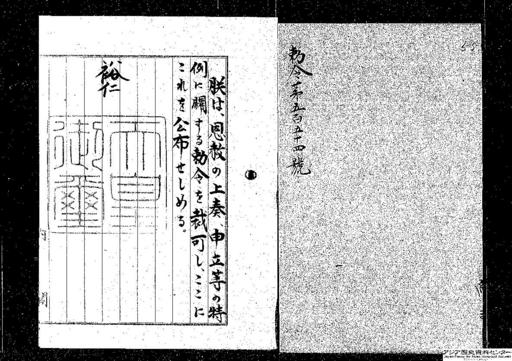 勅令第五百五十四號
朕は、恩赦の上奏、申立等の特
例に關する勅令を裁可し、ここに
これを公布せしめる。
裕仁
天皇
御璽
内閣
アジア歴史資料センター